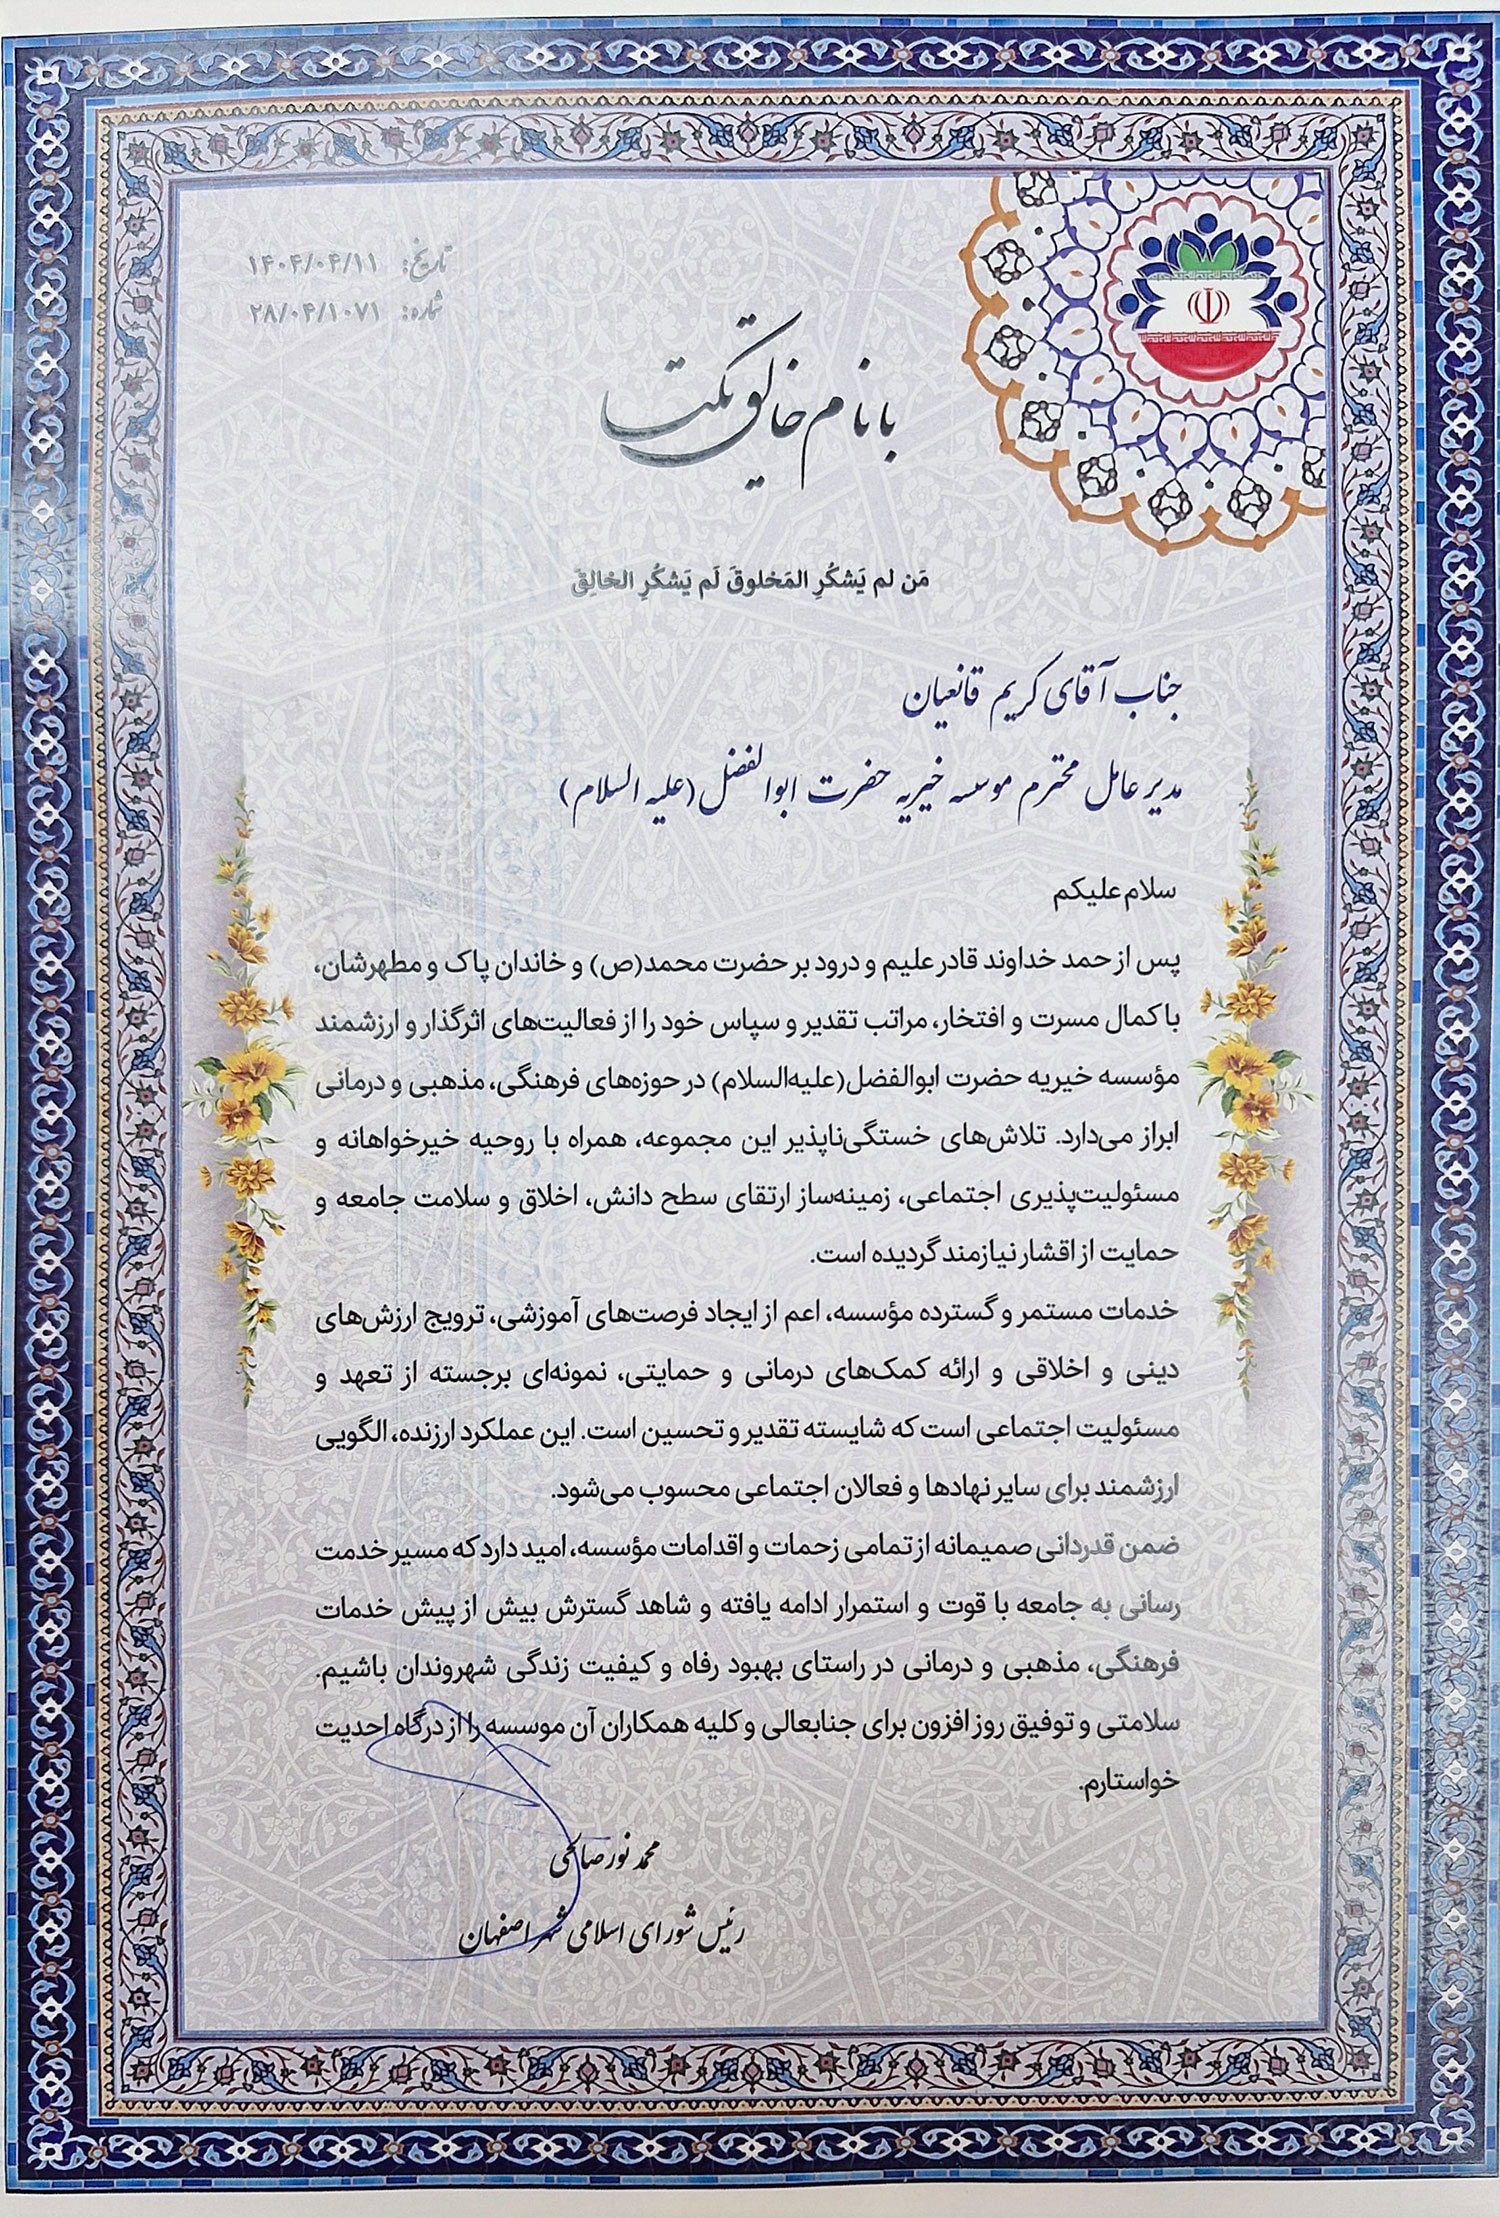 تاریخ: ۱۴۰۴/۰۴/۱۱
شماره: ۲۸/۰۴/۱۰۷۱
با نام خالق یکتا
مَن لم یَشکُرِ المَخلوقَ لَم یَشکُرِ الخالِقَ
جناب آقای کریم قانعیان
مدیر عامل محترم موسسه خیریه حضرت ابوالفضل(علیه السلام)
سلام علیکم
پس از حمد خداوند قادر علیم و درود بر حضرت محمد(ص) و خاندان پاک و مطهرشان،
با کمال مسرت و افتخار، مراتب تقدیر و سپاس خود را از فعالیت‌های اثرگذار و ارزشمند
مؤسسه خیریه حضرت ابوالفضل(علیه‌السلام) در حوزه‌های فرهنگی، مذهبی و درمانی
ابراز می‌دارد. تلاش‌های خستگی‌ناپذیر این مجموعه، همراه با روحیه خیرخواهانه و
مسئولیت‌پذیری اجتماعی، زمینه‌ساز ارتقای سطح دانش، اخلاق و سلامت جامعه و
حمایت از اقشار نیازمند گردیده است.
خدمات مستمر و گسترده مؤسسه، اعم از ایجاد فرصت‌های آموزشی، ترویج ارزش‌های
دینی و اخلاقی و ارائه کمک‌های درمانی و حمایتی، نمونه‌ای برجسته از تعهد و
مسئولیت اجتماعی است که شایسته تقدیر و تحسین است. این عملکرد ارزنده، الگویی
ارزشمند برای سایر نهادها و فعالان اجتماعی محسوب می‌شود.
ضمن قدردانی صمیمانه از تمامی زحمات و اقدامات مؤسسه، امید دارد که مسیر خدمت
رسانی به جامعه با قوت و استمرار ادامه یافته و شاهد گسترش بیش از پیش خدمات
فرهنگی، مذهبی و درمانی در راستای بهبود رفاه و کیفیت زندگی شهروندان باشیم.
سلامتی و توفیق روز افزون برای جنابعالی و کلیه همکاران آن موسسه را از درگاه احدیت
خواستارم.
محمد نورصالحی
رئیس شورای اسلامی شهر اصفهان